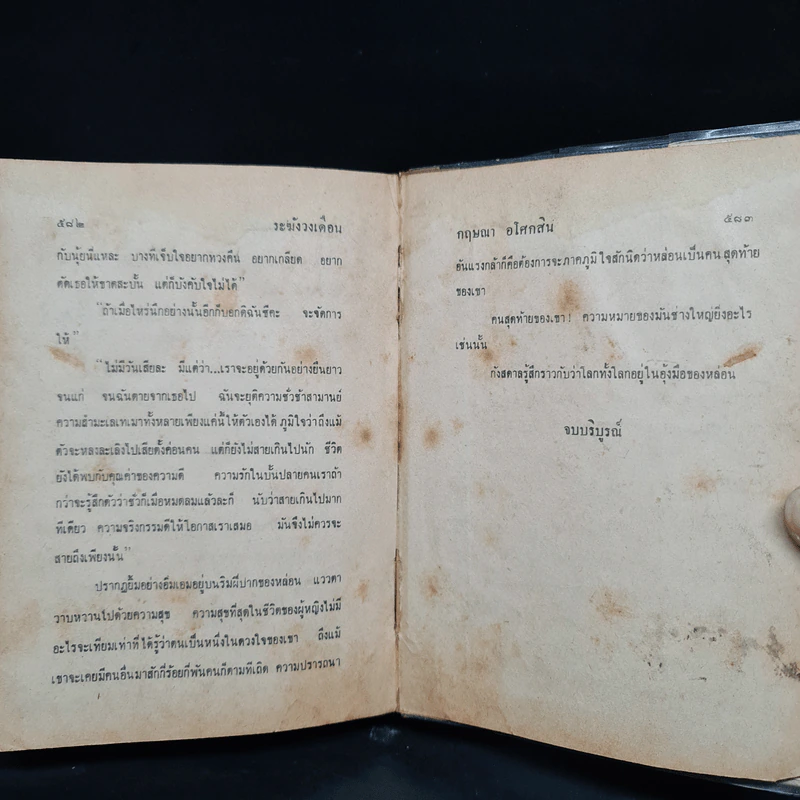 ๕๘๒
ระฆังวงเดือน
กับนุ้ยนี่แหละ บางทีเจ็บใจอยากทวงคืน อยากเกลียด อยาก
ตัดเธอให้ขาดสะบั้น แต่ก็บังคับใจไม่ได้”
“ถ้าเมื่อไหร่นึกอย่างนั้นอีกก็บอกดิฉันซีคะ จะจัดการ
ให้”
“ไม่มีวันเสียละ มีแต่ว่า...เราจะอยู่ด้วยกันอย่างยืนยาว
จนแก่ จนฉันตายจากเธอไป ฉันจะยุติความชั่วช้าสามานย์
ความสำมะเลเทเมาทั้งหลายเพียงแค่นี้ให้ตัวเองได้ ภูมิใจว่าถึงแม้
ตัวจะหลงละเลิงไปเสียตั้งค่อนคน แต่ก็ยังไม่สายเกินไปนัก ชีวิต
ยังได้พบกับคุณค่าของความดี ความรักในบั้นปลายคนเราถ้า
กว่าจะรู้สึกตัวว่าชั่วก็เมื่อหมดลมแล้วละก็ นับว่าสายเกินไปมาก
ทีเดียว ความจริงกรรมดีให้โอกาสเราเสมอ มันจึงไม่ควรจะ
สายถึงเพียงนั้น”
ปรากฏยิ้มอย่างอิ่มเอมอยู่บนริมฝีปากของหล่อน แววตา
วาบหวานไปด้วยความสุข ความสุขที่สุดในชีวิตของผู้หญิงไม่มี
อะไรจะเทียมเท่าที่ได้รู้ว่าตนเป็นหนึ่งในดวงใจของเขา ถึงแม้
เขาจะเคยมีคนอื่นมาสักกี่ร้อยกี่พันคนก็ตามทีเถิด ความปรารถนา
กฤษณา อโศกสิน
๕๘๓
อันแรงกล้าก็คือต้องการจะภาคภูมิใจสักนิดว่าหล่อนเป็นคนสุดท้าย
ของเขา
คนสุดท้ายของเขา! ความหมายของมันช่างใหญ่ยิ่งอะไร
เช่นนั้น
กังสดาลรู้สึกราวกับว่าโลกทั้งโลกอยู่ในอุ้งมือของหล่อน
จบบริบูรณ์